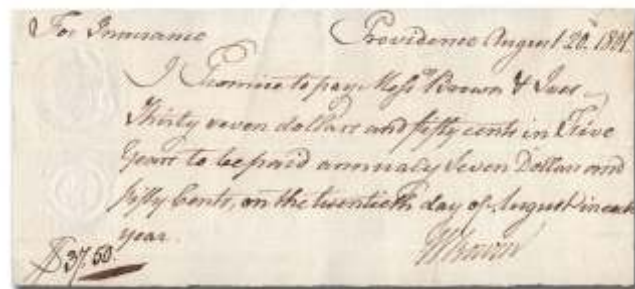 For Insurance Providence August 20th 1801.
I Promise to pay Messrs Brown & Ives
Thirty seven dollars and fifty cents in Five
years to be paid annualy Seven Dollars and
fifty Cents, on the twentieth day of August in each
year.
$37.50.